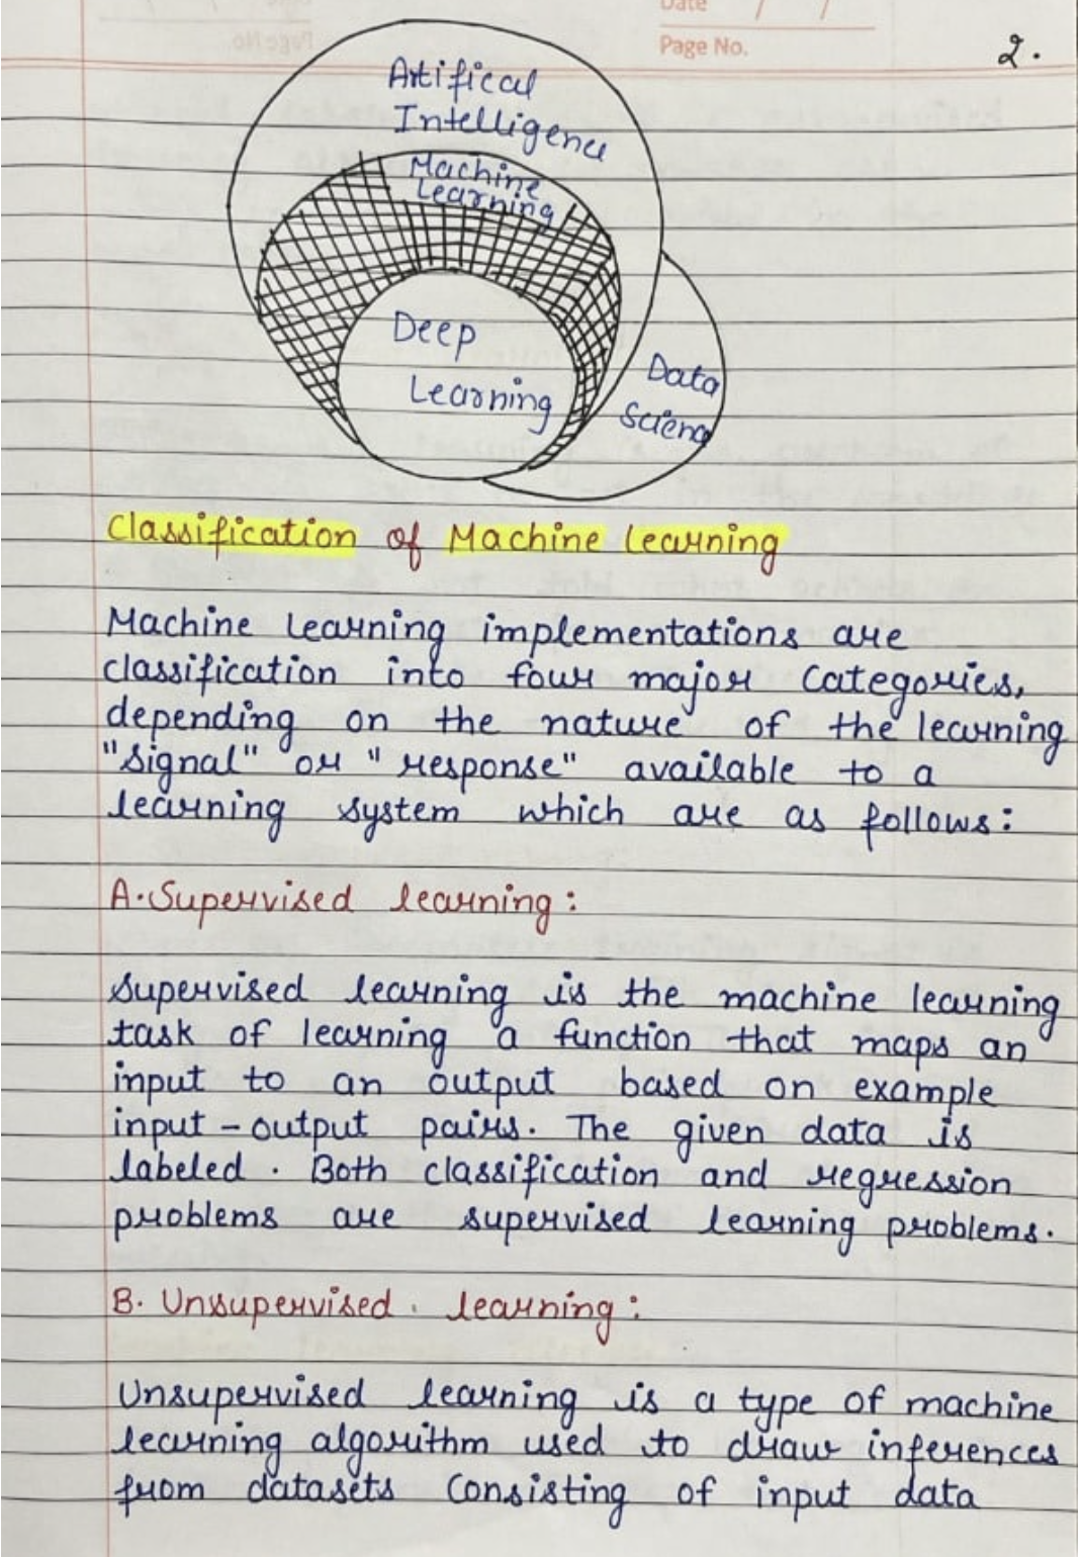 Date / /
Page No.
2.
Artifical
Intelligence
Machine
Learning
Deep
Learning
Data
Scienc
Classification of Machine learning
Machine learning implementations are
classification into four major Categories,
depending on the nature of the learning
"signal" or "response" available to a
learning system which are as follows:
A. Supervised learning:
Supervised learning is the machine learning
task of learning a function that maps an
input to an output based on example
input-output pairs. The given data is
labeled. Both classification and regression
problems are supervised learning problems.
B. Unsupervised learning:
Unsupervised learning is a type of machine
learning algorithm used to draw inferences
from datasets Consisting of input data